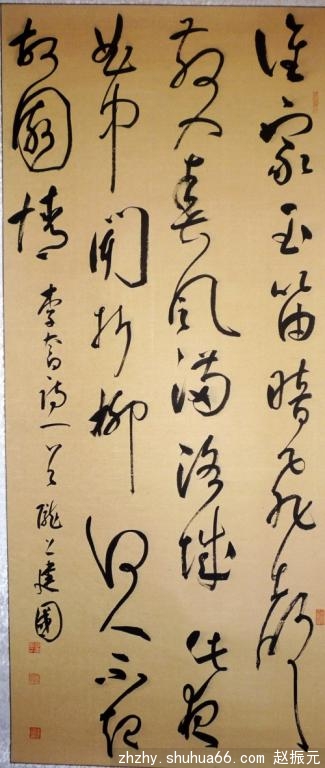 誰家玉笛暗飛聲
散入春風滿洛城此夜
曲中聞折柳何人不起
故園情 李太白詩一首 隴上建國
zhzhy.shuhua66.com 赵振元